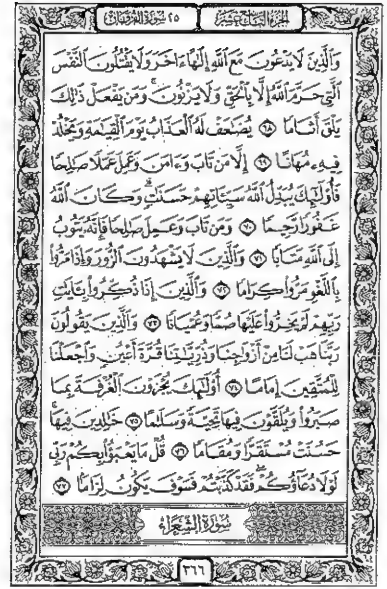 الجزء التاسع عشر ٢٥ سورة الفرقان
وَالَّذِينَ لَا يَدْعُونَ مَعَ اللَّهِ إِلَٰهًا ءَاخَرَ وَلَا يَقْتُلُونَ النَّفْسَ
الَّتِي حَرَّمَ اللَّهُ إِلَّا بِالْحَقِّ وَلَا يَزْنُونَ ۚ وَمَن يَفْعَلْ ذَٰلِكَ
يَلْقَ أَثَامًا ﴿٦٨﴾ يُضَٰعَفْ لَهُ الْعَذَابُ يَوْمَ الْقِيَٰمَةِ وَيَخْلُدْ
فِيهِۦ مُهَانًا ﴿٦٩﴾ إِلَّا مَن تَابَ وَءَامَنَ وَعَمِلَ عَمَلًا صَٰلِحًا
فَأُولَٰئِكَ يُبَدِّلُ اللَّهُ سَيِّئَاتِهِمْ حَسَنَٰتٍ ۗ وَكَانَ اللَّهُ
غَفُورًا رَّحِيمًا ﴿٧٠﴾ وَمَن تَابَ وَعَمِلَ صَٰلِحًا فَإِنَّهُۥ يَتُوبُ
إِلَى اللَّهِ مَتَابًا ﴿٧١﴾ وَالَّذِينَ لَا يَشْهَدُونَ الزُّورَ وَإِذَا مَرُّوا
بِاللَّغْوِ مَرُّوا كِرَامًا ﴿٧٢﴾ وَالَّذِينَ إِذَا ذُكِّرُوا بِـَٔايَٰتِ
رَبِّهِمْ لَمْ يَخِرُّوا عَلَيْهَا صُمًّا وَعُمْيَانًا ﴿٧٣﴾ وَالَّذِينَ يَقُولُونَ
رَبَّنَا هَبْ لَنَا مِنْ أَزْوَٰجِنَا وَذُرِّيَّٰتِنَا قُرَّةَ أَعْيُنٍ وَاجْعَلْنَا
لِلْمُتَّقِينَ إِمَامًا ﴿٧٤﴾ أُولَٰئِكَ يُجْزَوْنَ الْغُرْفَةَ بِمَا
صَبَرُوا وَيُلَقَّوْنَ فِيهَا تَحِيَّةً وَسَلَٰمًا ﴿٧٥﴾ خَٰلِدِينَ فِيهَا ۚ
حَسُنَتْ مُسْتَقَرًّا وَمُقَامًا ﴿٧٦﴾ قُلْ مَا يَعْبَؤُا بِكُمْ رَبِّي
لَوْلَا دُعَاؤُكُمْ ۖ فَقَدْ كَذَّبْتُمْ فَسَوْفَ يَكُونُ لِزَامًا ﴿٧٧﴾
سُورَةُ الشُّعَرَاءِ
٣٦٦